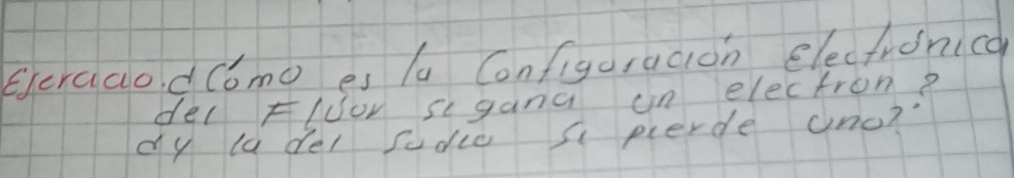 Ejercicio. ¿Cómo es la Configuración electrónica
del Flúor si gana un electron?
¿y la del Sodio si pierde uno?